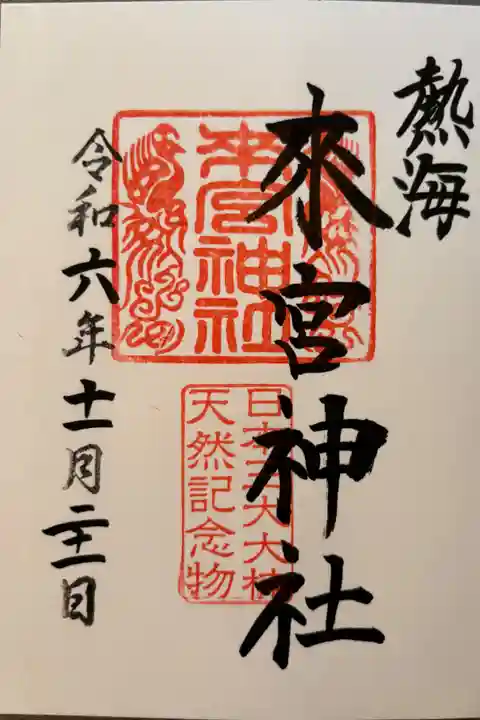 熱海
來宮神社
令和六年十一月二十一日
來宮神社
日本五大大楠
天然記念物